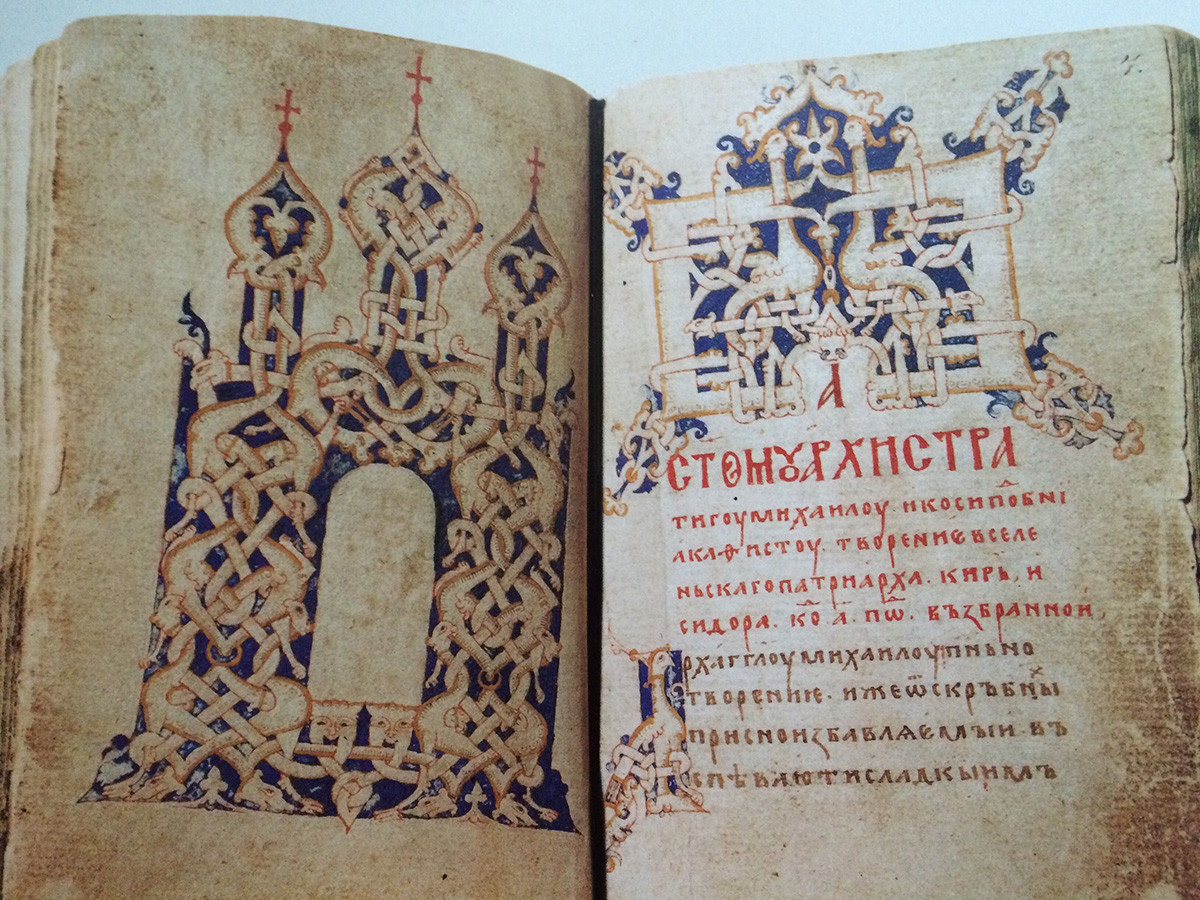 А
СТОМꙊАРХИСТРА
тигоу михаилоу. икоси подобні
акаѳистоу. творение вселе
ньскаго патриарха. кирь, и
сидора. ко҃. а҃. пѡ҃. възбранной,
Архагглоу михаилоу пѣньно
творение. иже ѿ скръбны
присно избавляемыи. въ
спѣваюти сладкыимъ